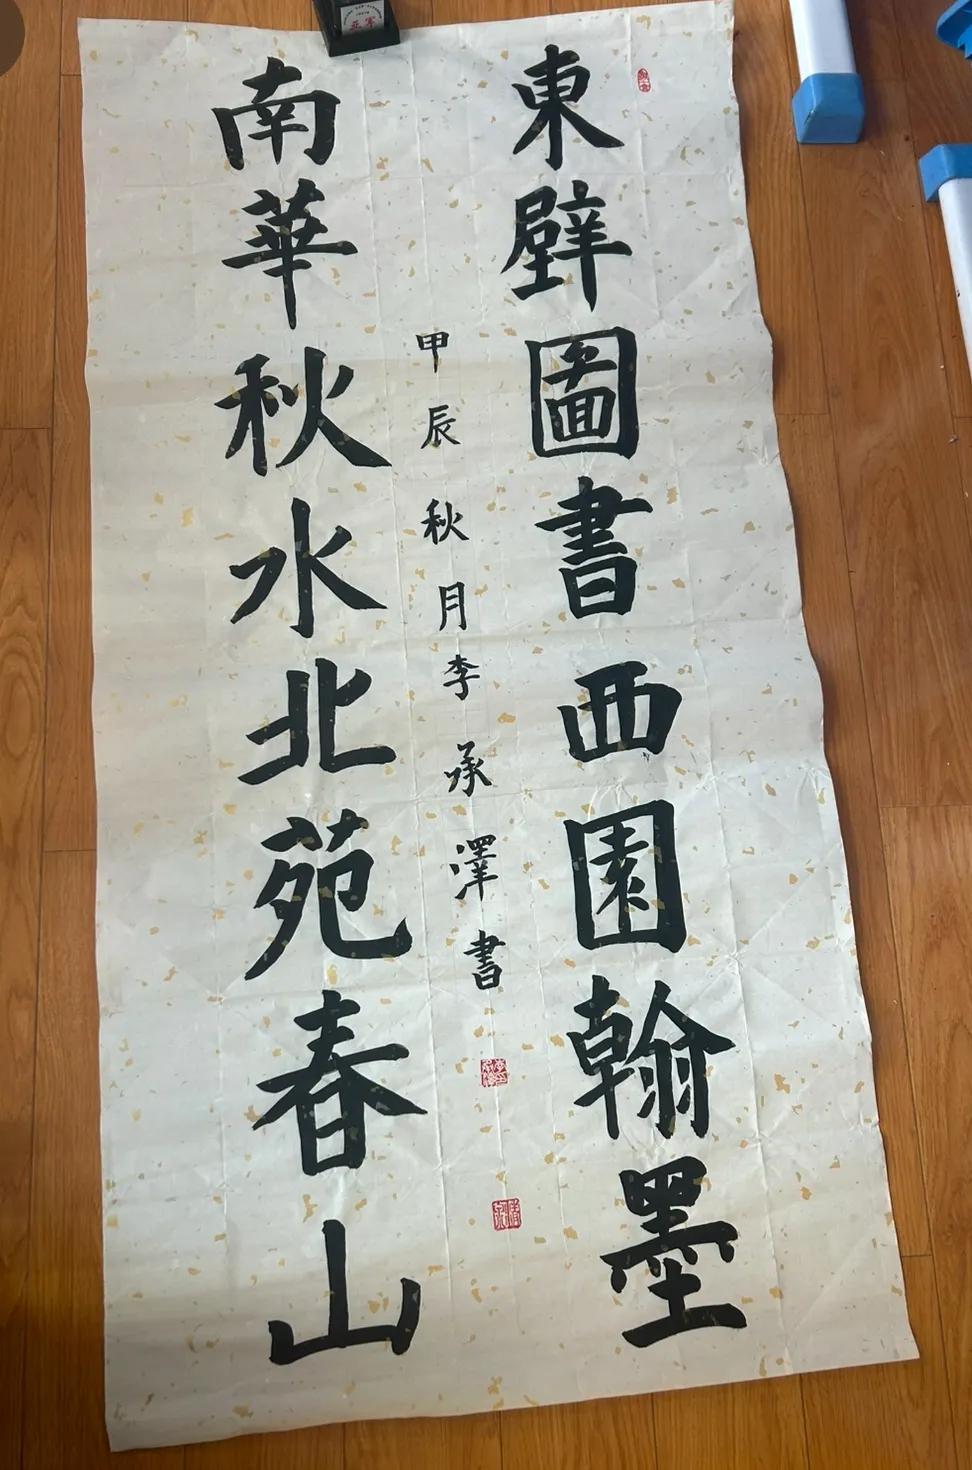 東壁圖書西園翰墨
甲辰秋月李承澤書
南華秋水北苑春山